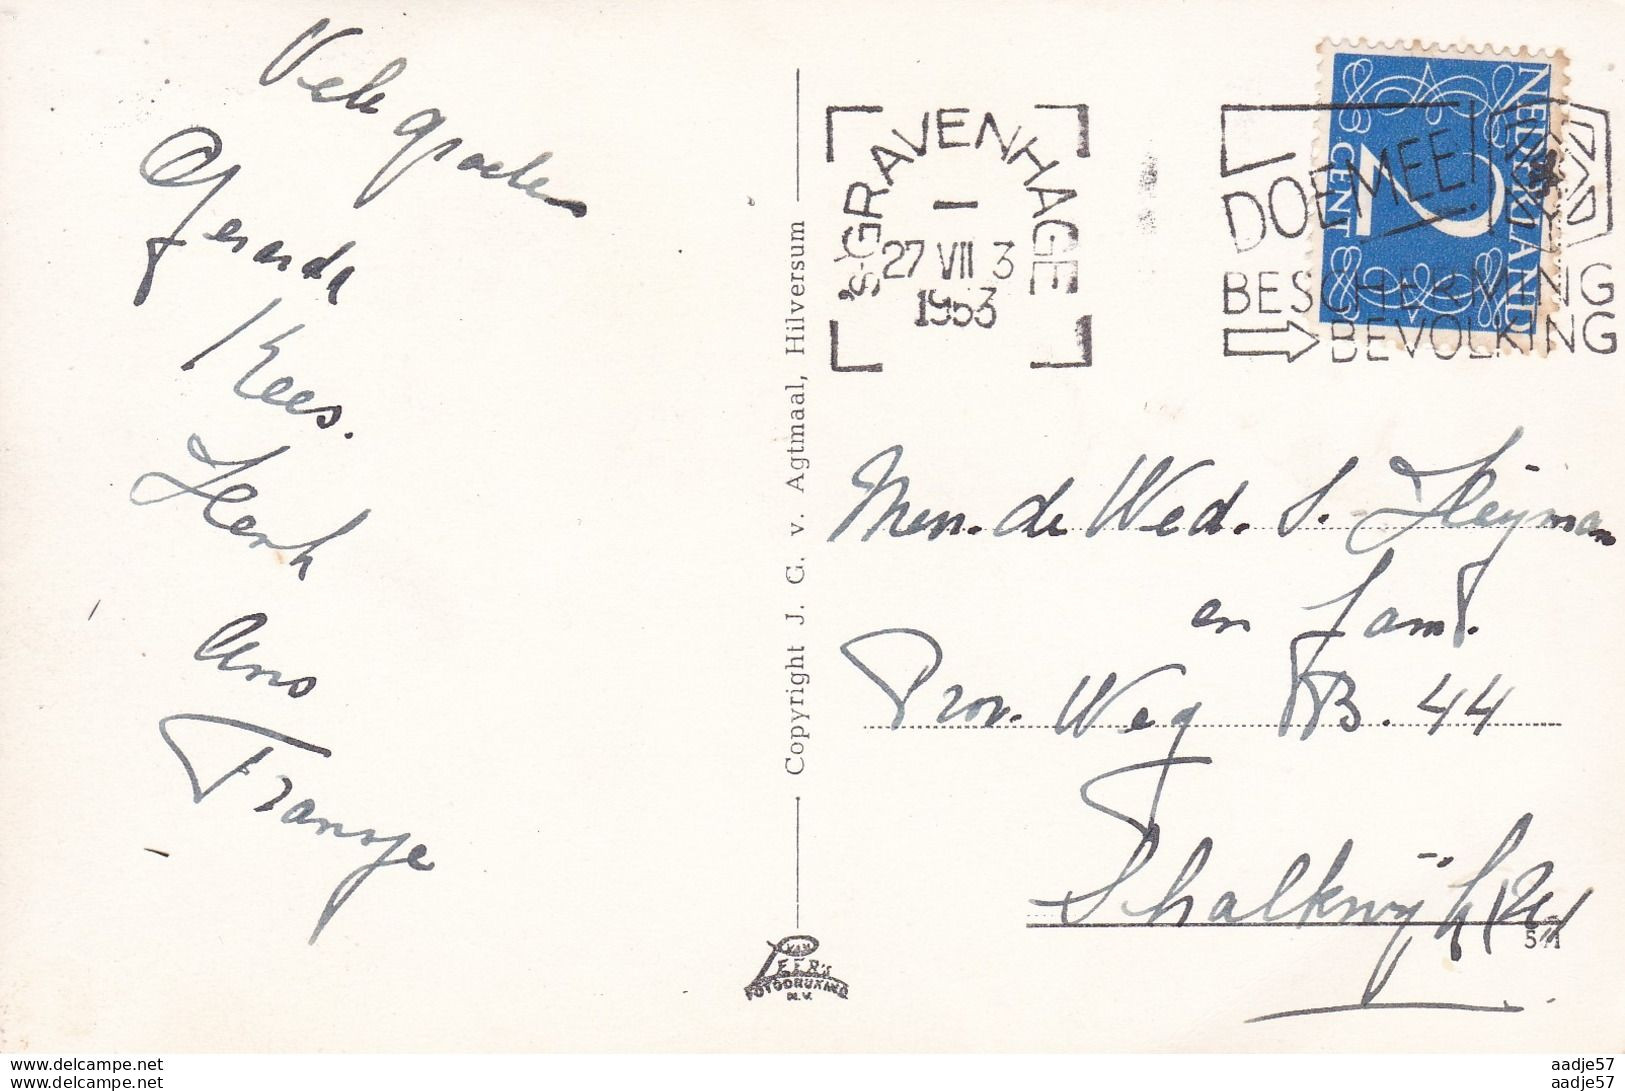 Vele groeten
Gerarda
Kees.
Henk
Ans
Fransje
Copyright J. G. v. Agtmaal, Hilversum
VAN
LEER's
FOTODRUK IND.
N.V.
's-GRAVENHAGE
27 VII 3
1953
NEDERLAND
2
CENT
DOE MEE!
BESCHERMING
BEVOLKING
Men. de Wed. S. Heijman
en fam.
Prov. Weg B. 44
Schalkwijk (U)
541
www.delcampe.net
www.delcampe.net
aadje57
aadje57